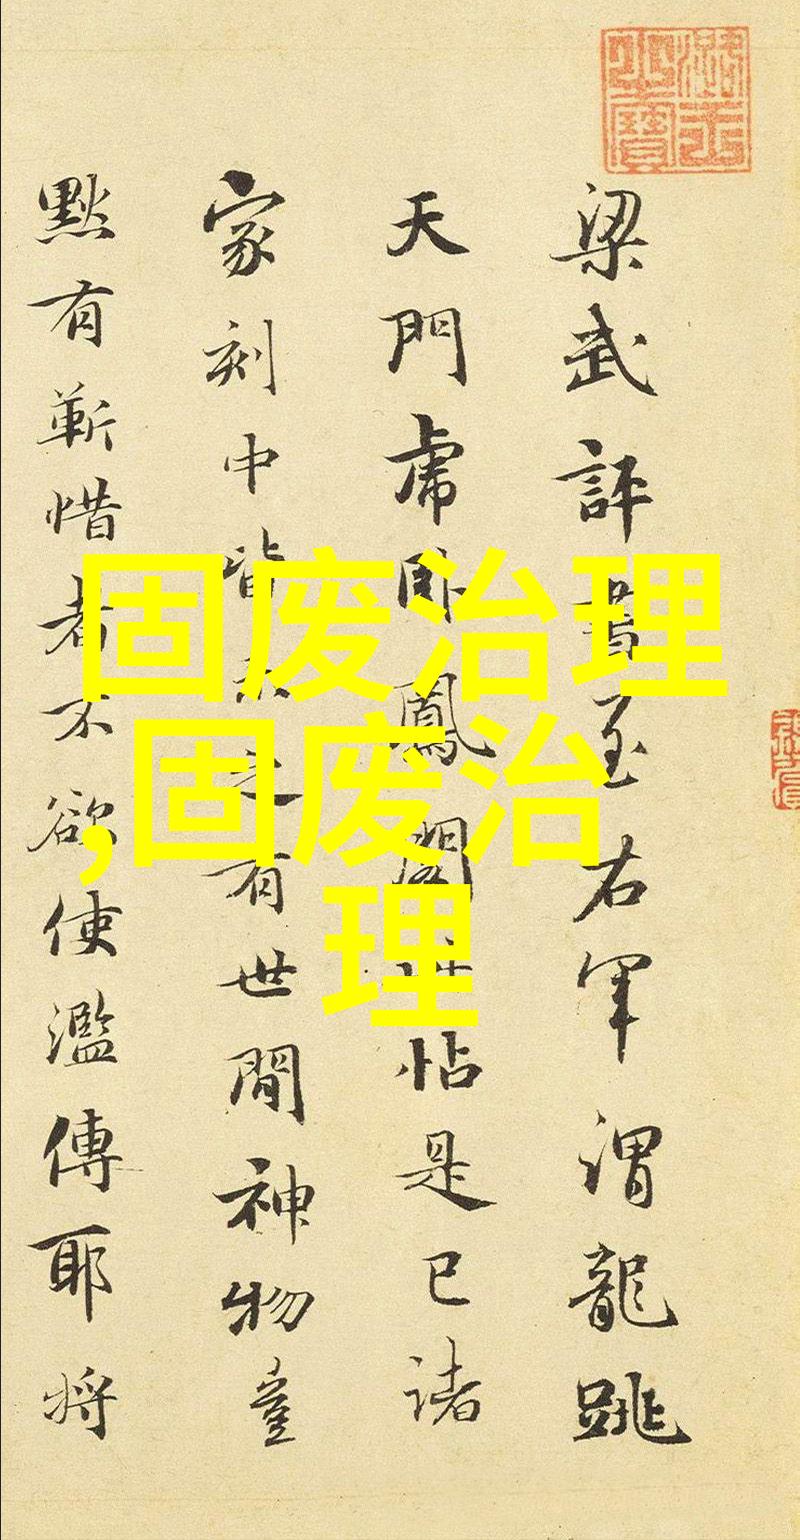 梁武評書至右軍謂龍跳
天門虎卧鳳閣帖是已諸
家刻中皆之有世間神物豈
黙有靳惜者不欲使濫傳耶將
固废治理
,固废治
理